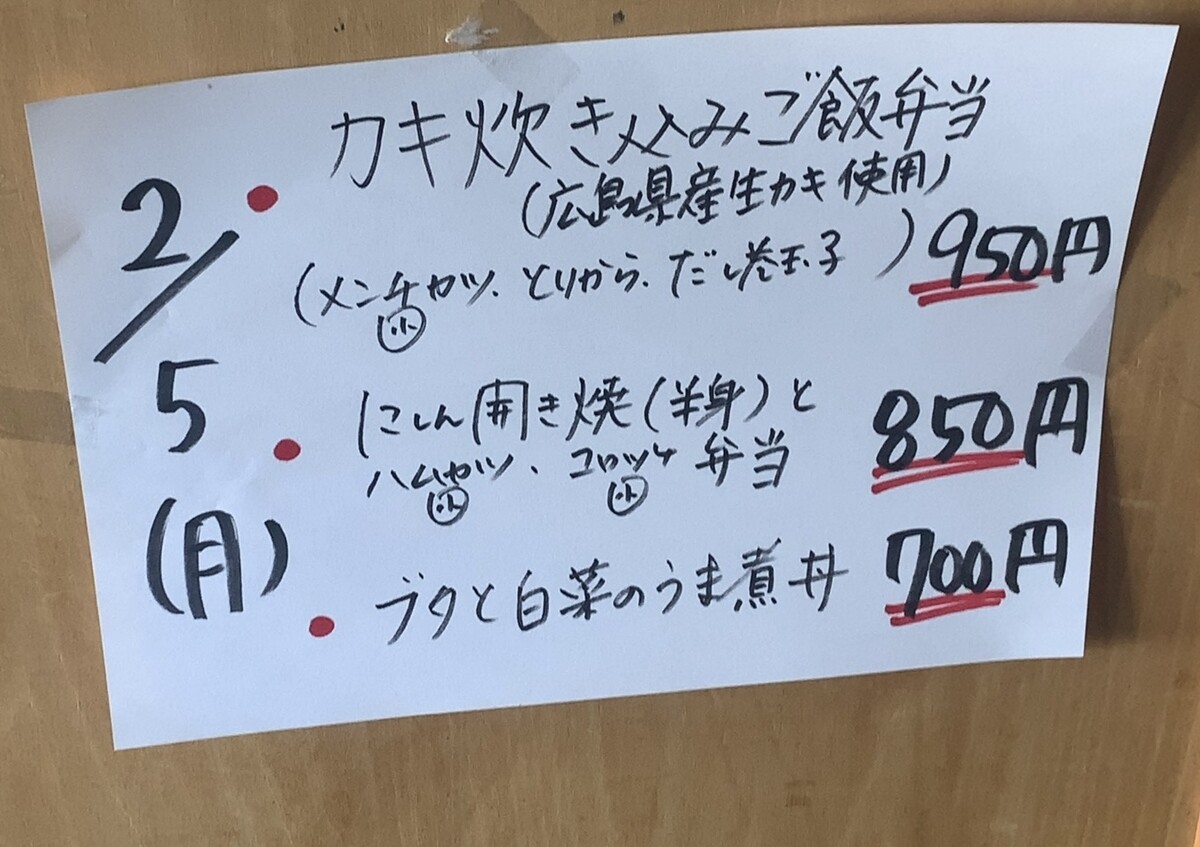 2/5(月)
・カキ炊き込みご飯弁当
(広島県産生カキ使用)
(メンチカツ、とりから、だし巻玉子) 950円
小
・にしん開き焼(半身)と
ハムカツ、コロッケ弁当 850円
小 小
・ブタと白菜のうま煮丼 700円